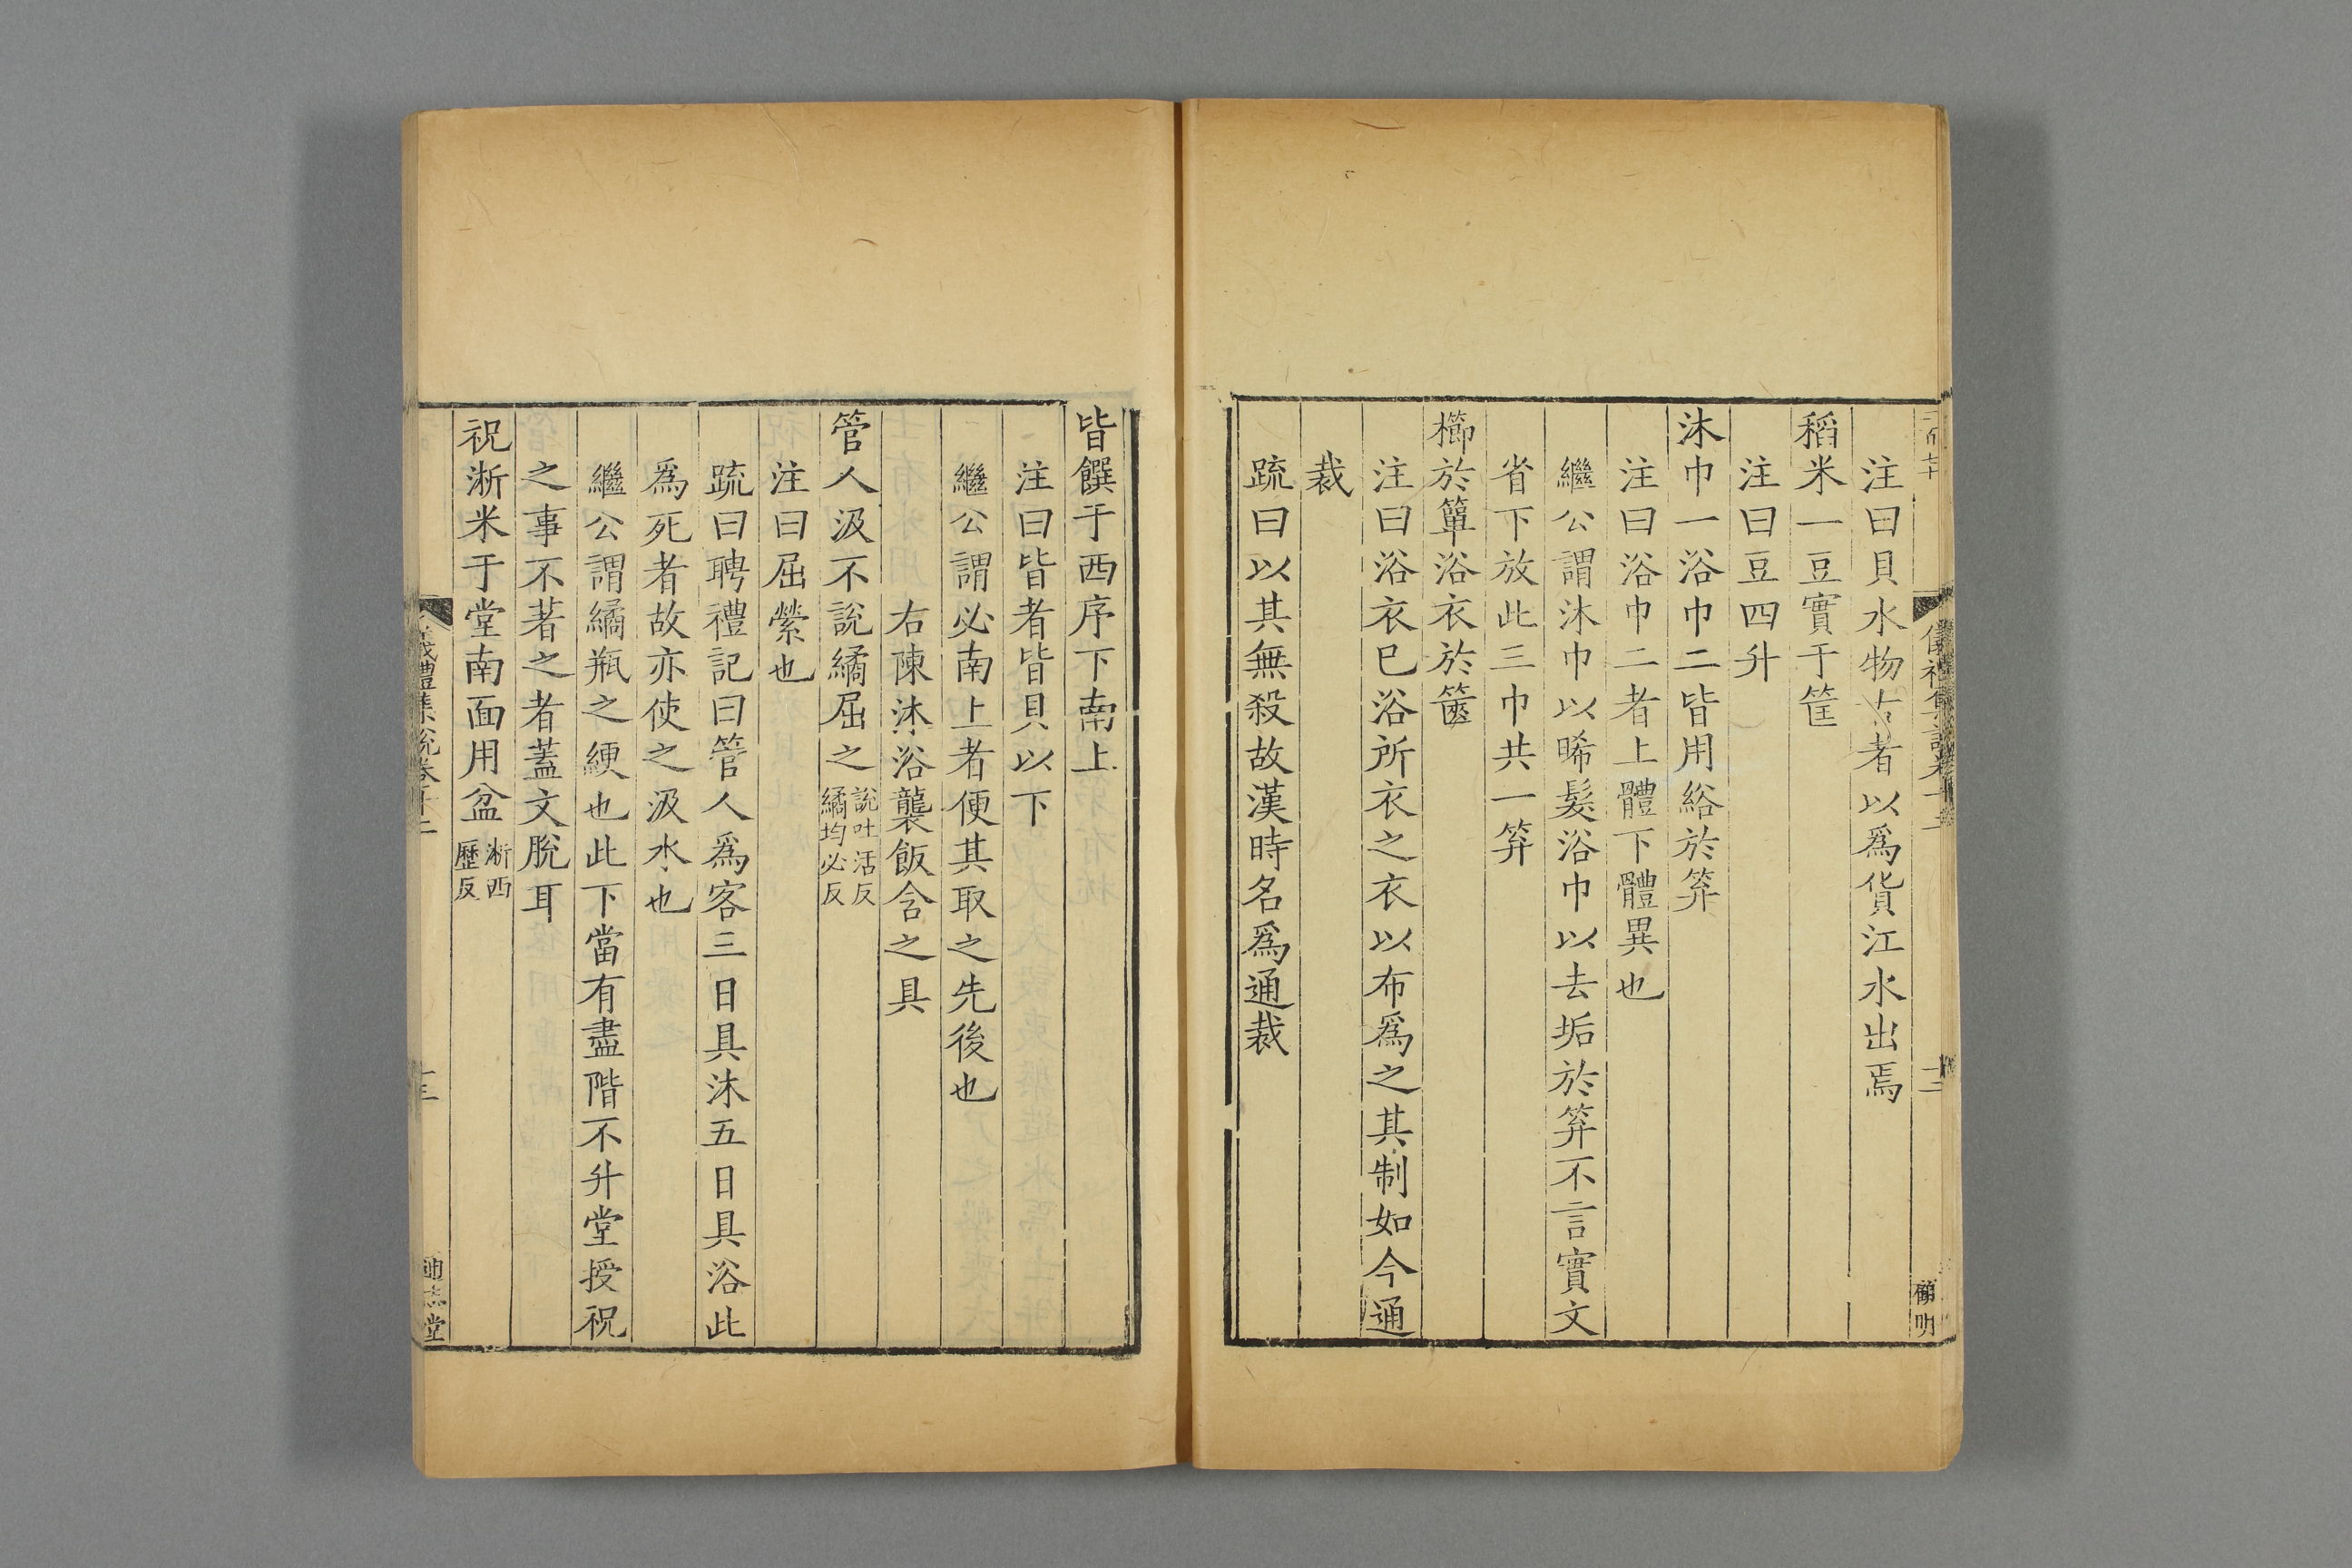 注曰貝水物古者以爲貨江水出焉
稻米一豆實于筐
注曰豆四升
沐巾一浴巾二皆用綌於笲
注曰浴巾二者上體下體異也
繼公謂沐巾以晞髮浴巾以去垢於笲不言實文
省下放此三巾共一笲
櫛於簞浴衣於篋
注曰浴衣巳浴所衣之衣以布爲之其制如今通
裁
疏曰以其無殺故漢時名爲通裁
皆饌于西序下南上
注曰皆者皆貝以下
繼公謂必南上者便其取之先後也
右陳沐浴襲飯含之具
管人汲不說繘屈之說吐活反繘均必反
注曰屈縈也
疏曰聘禮記曰管人爲客三日具沐五日具浴此
爲死者故亦使之汲水也
繼公謂繘瓶之綆也此下當有盡階不升堂授祝
之事不著之者蓋文脫耳
祝淅米于堂南面用盆淅西歷反
儀禮集說卷十二
十三
通志堂